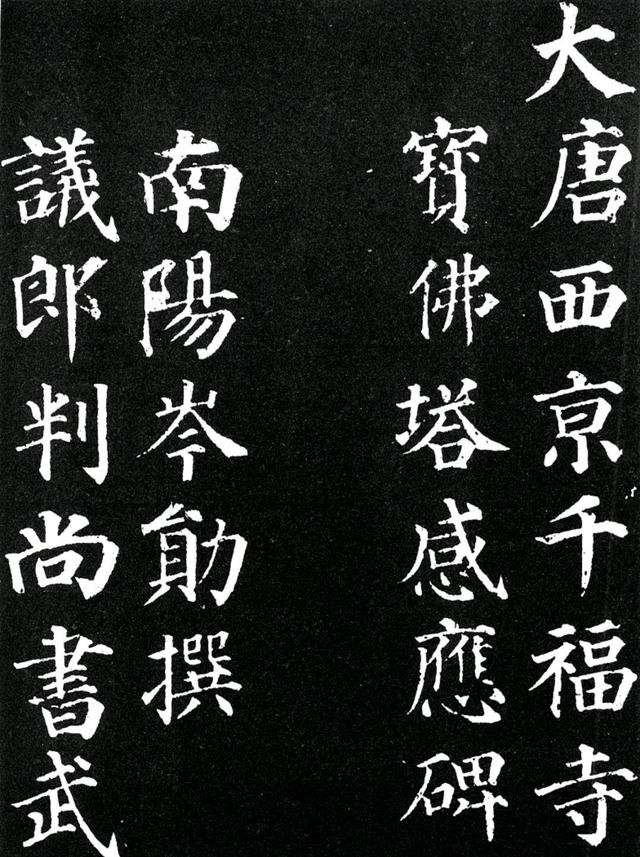 大唐西亰千福寺
寶佛塔感應碑
南陽岑勛撰
議郎判尚書武